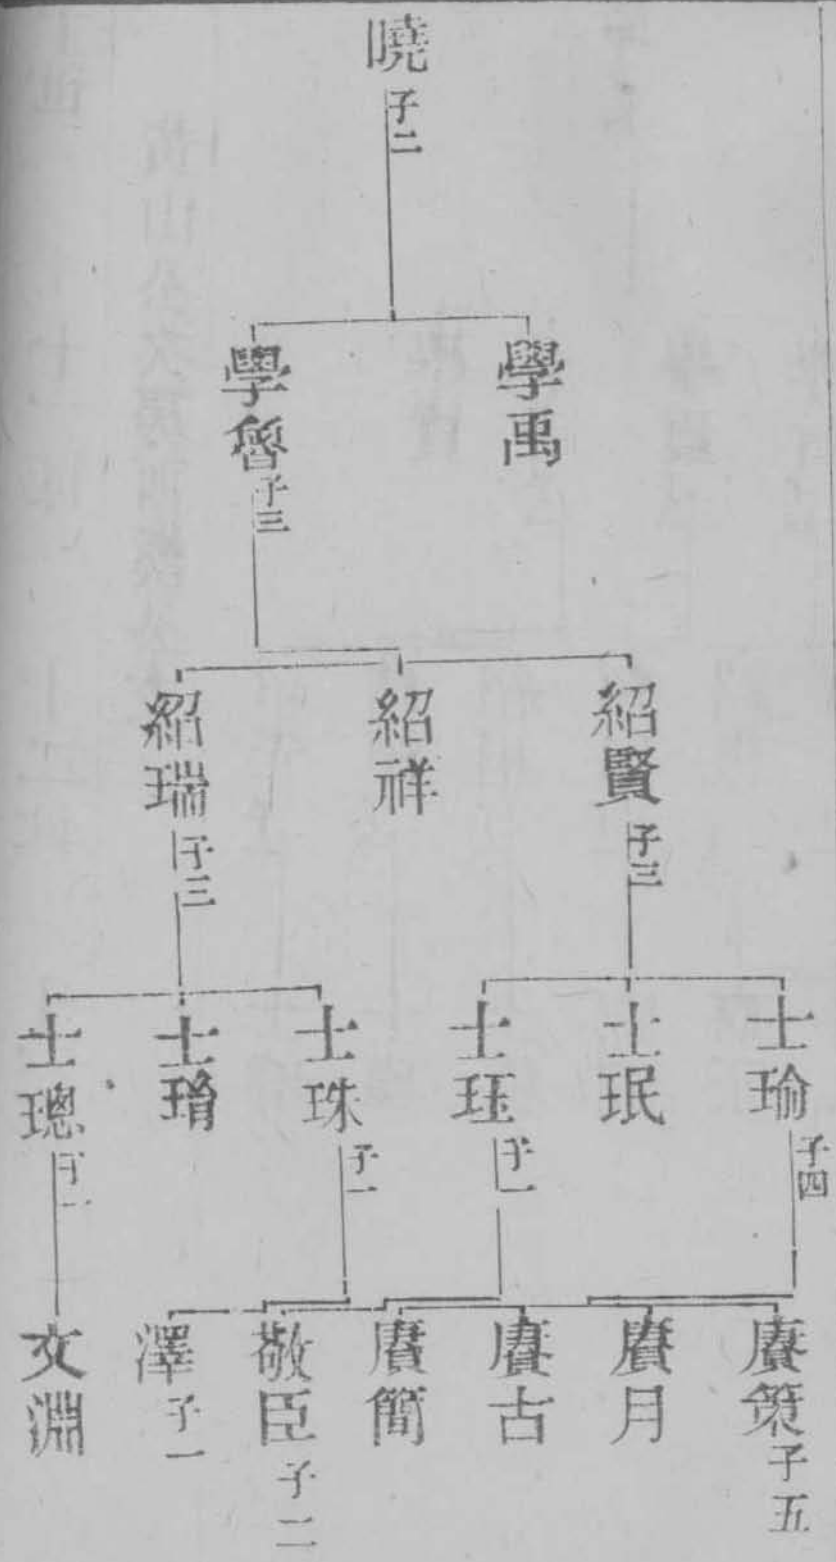 曉 子二
學禹
學魯 子三
紹賢 子三
紹祥
紹瑞 子三
士瑜 子四
士珉
士珏 子一
士珠 子一
士琦
士璁 子一
賡策 子五
賡月
賡古
賡簡
敬臣 子二
澤 子一
文淵